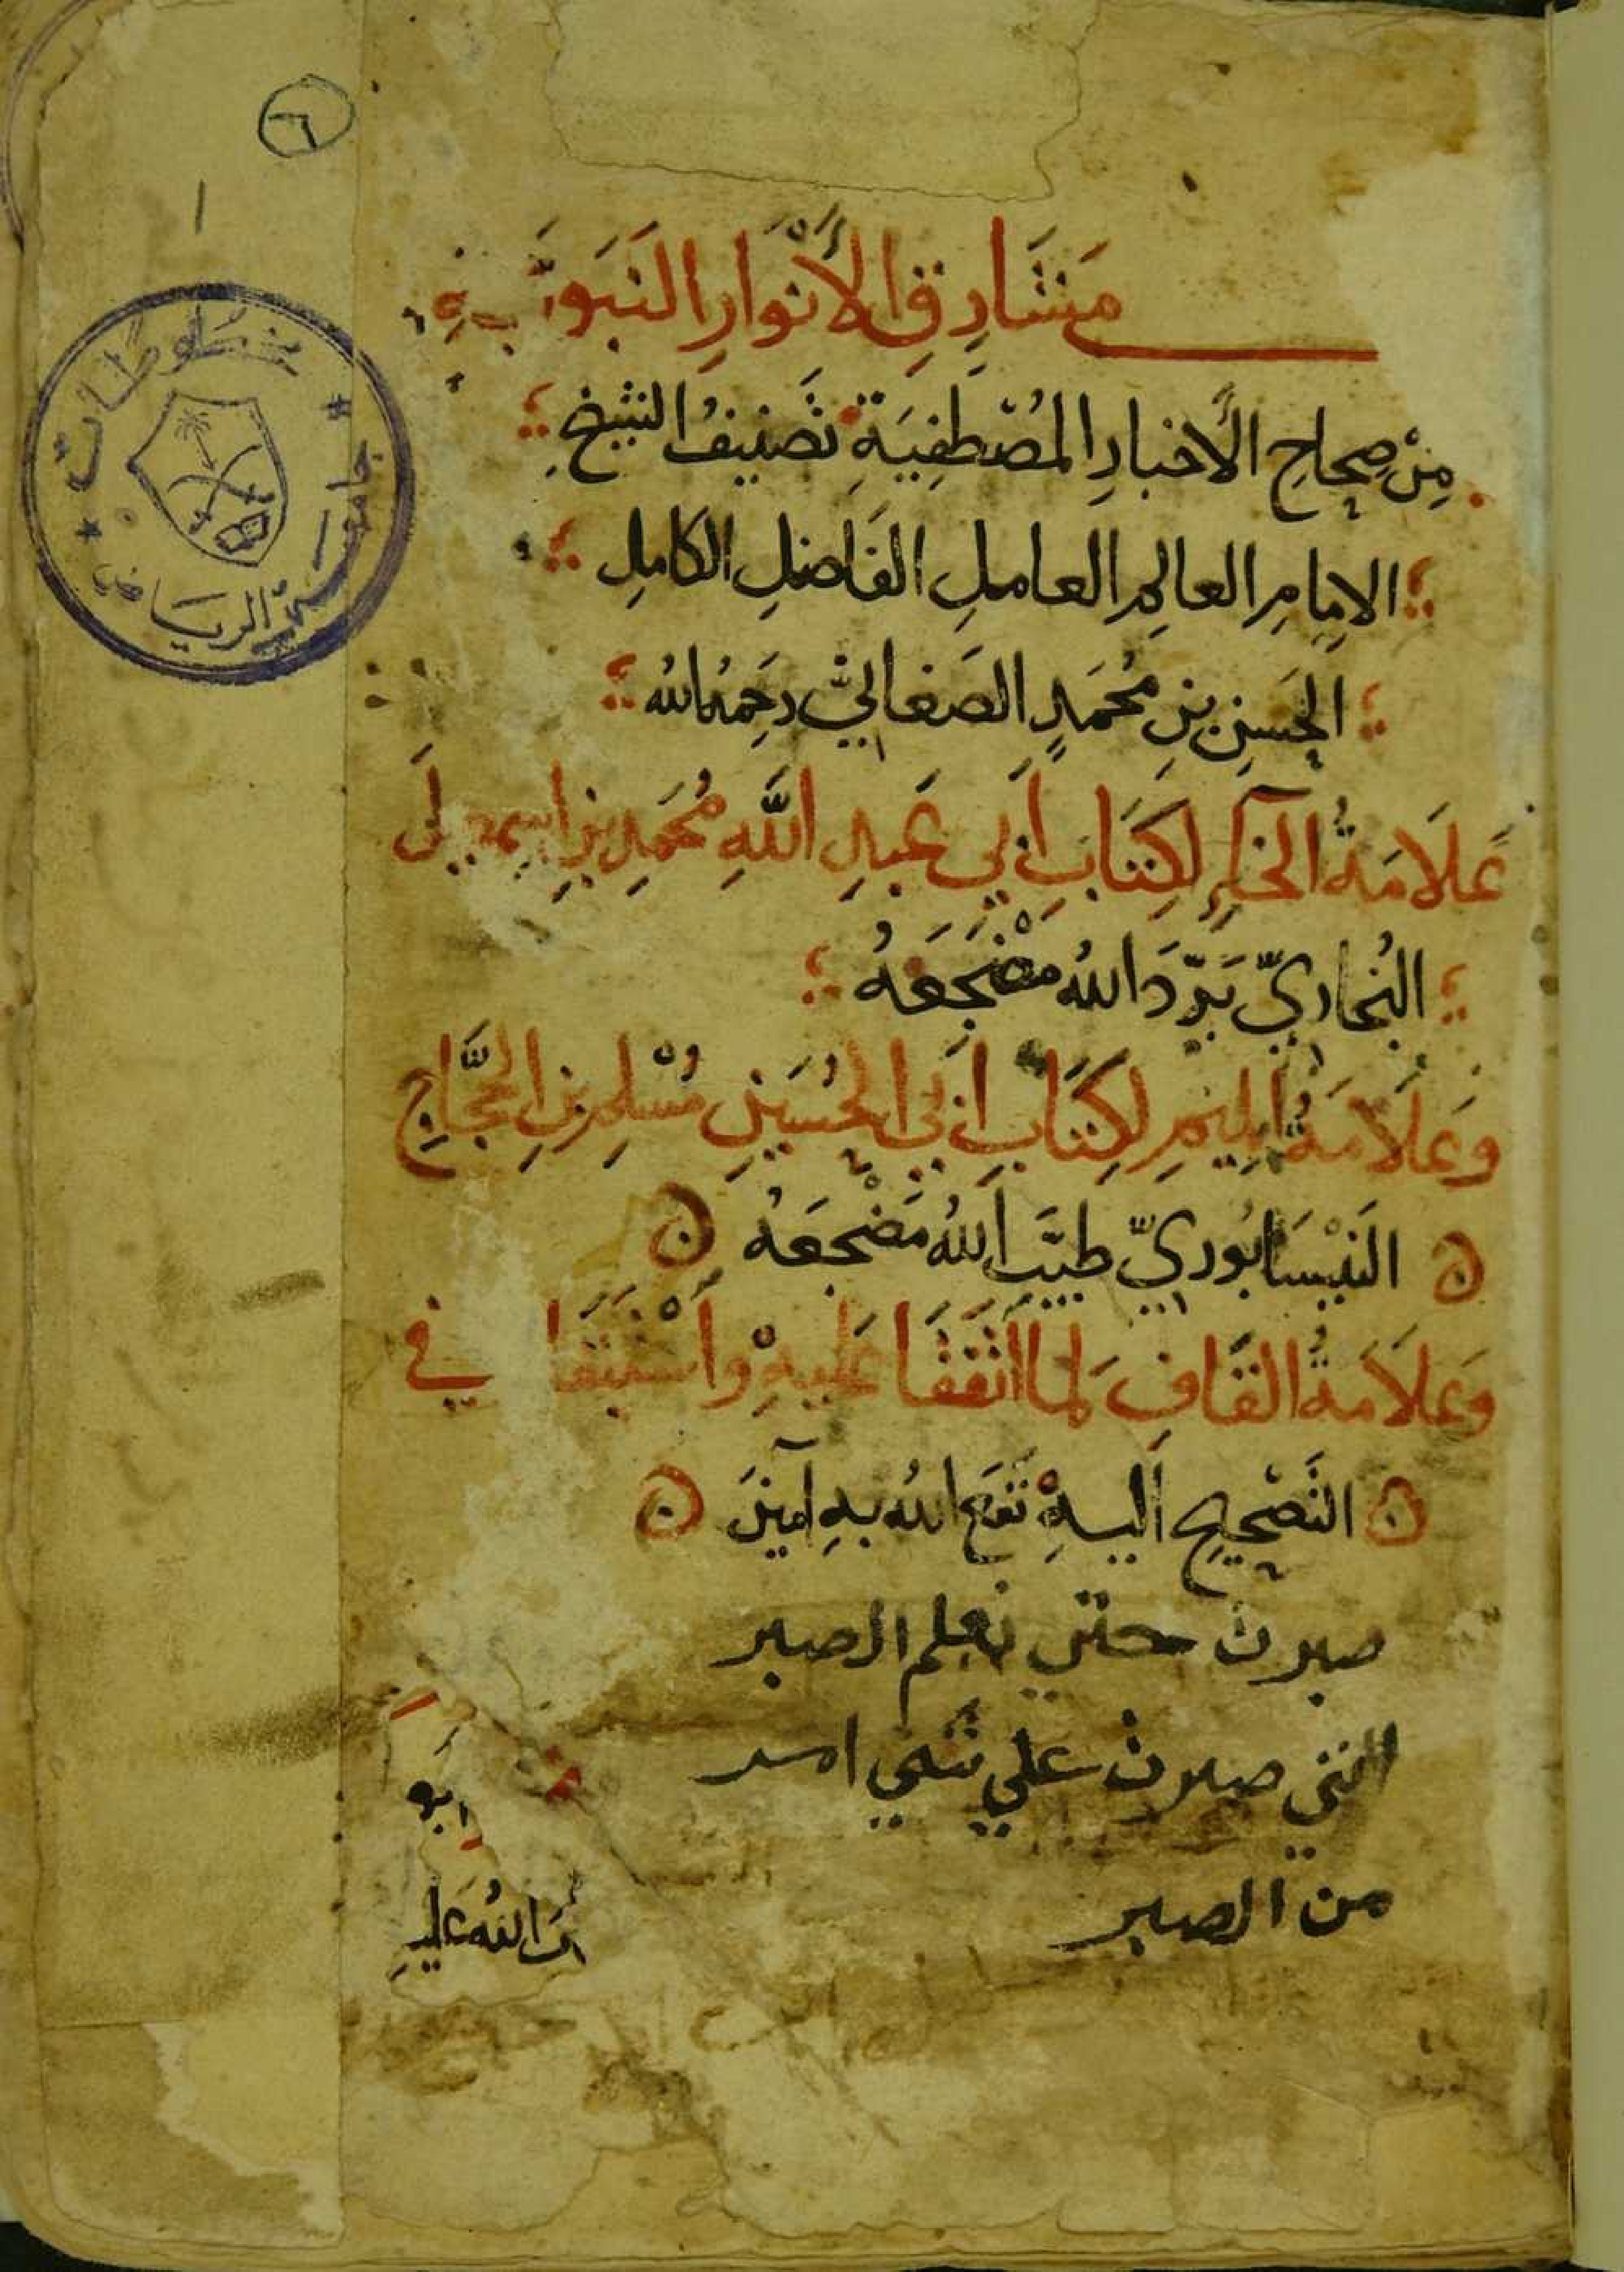 ٦
١
مَشَارِقِ الأَنْوَارِ النَبَوِيَّةِ
مِنْ صِحَاحِ الأَخبارِ المُصْطَفِيَةِ تَصنِيفُ الشيخِ
الامامِ العالِمِ العامِلِ الفَاضِلِ الكامِلِ
الحَسَنِ بنِ مُحَمَّدٍ الصَغانيّ رَحِمَهُ الله
عَلَامَةُ الخَاءِ لِكِتَابِ أَبي عَبدِ اللَّهِ مُحَمَدِ بنِ اسمعِيلَ
البُخاريِّ بَرَّدَ اللهُ مَضْجَعَهُ
وَعَلَامَةُ المِيمِ لِكِتَابِ أَبي الحُسَينِ مُسْلِمِ بنِ الحَجَّاجِ
النَيْسَابُوريِّ طيَّبَ اللهُ مَضْجَعَهُ
وَعَلَامَةُ القَافِ لِمَا اتَّفَقَا عَلَيهِ وَاسْتَبَقَا في
التَصْحِيحِ إليهِ نَفَعَ اللهُ بهِ آمينَ
صبرت حتي تعلم الصبر
انني صبرت علي شي امر
من الصبر
ابو
اللهُ عَليهِ
جامعة الرياض
مخطوطات